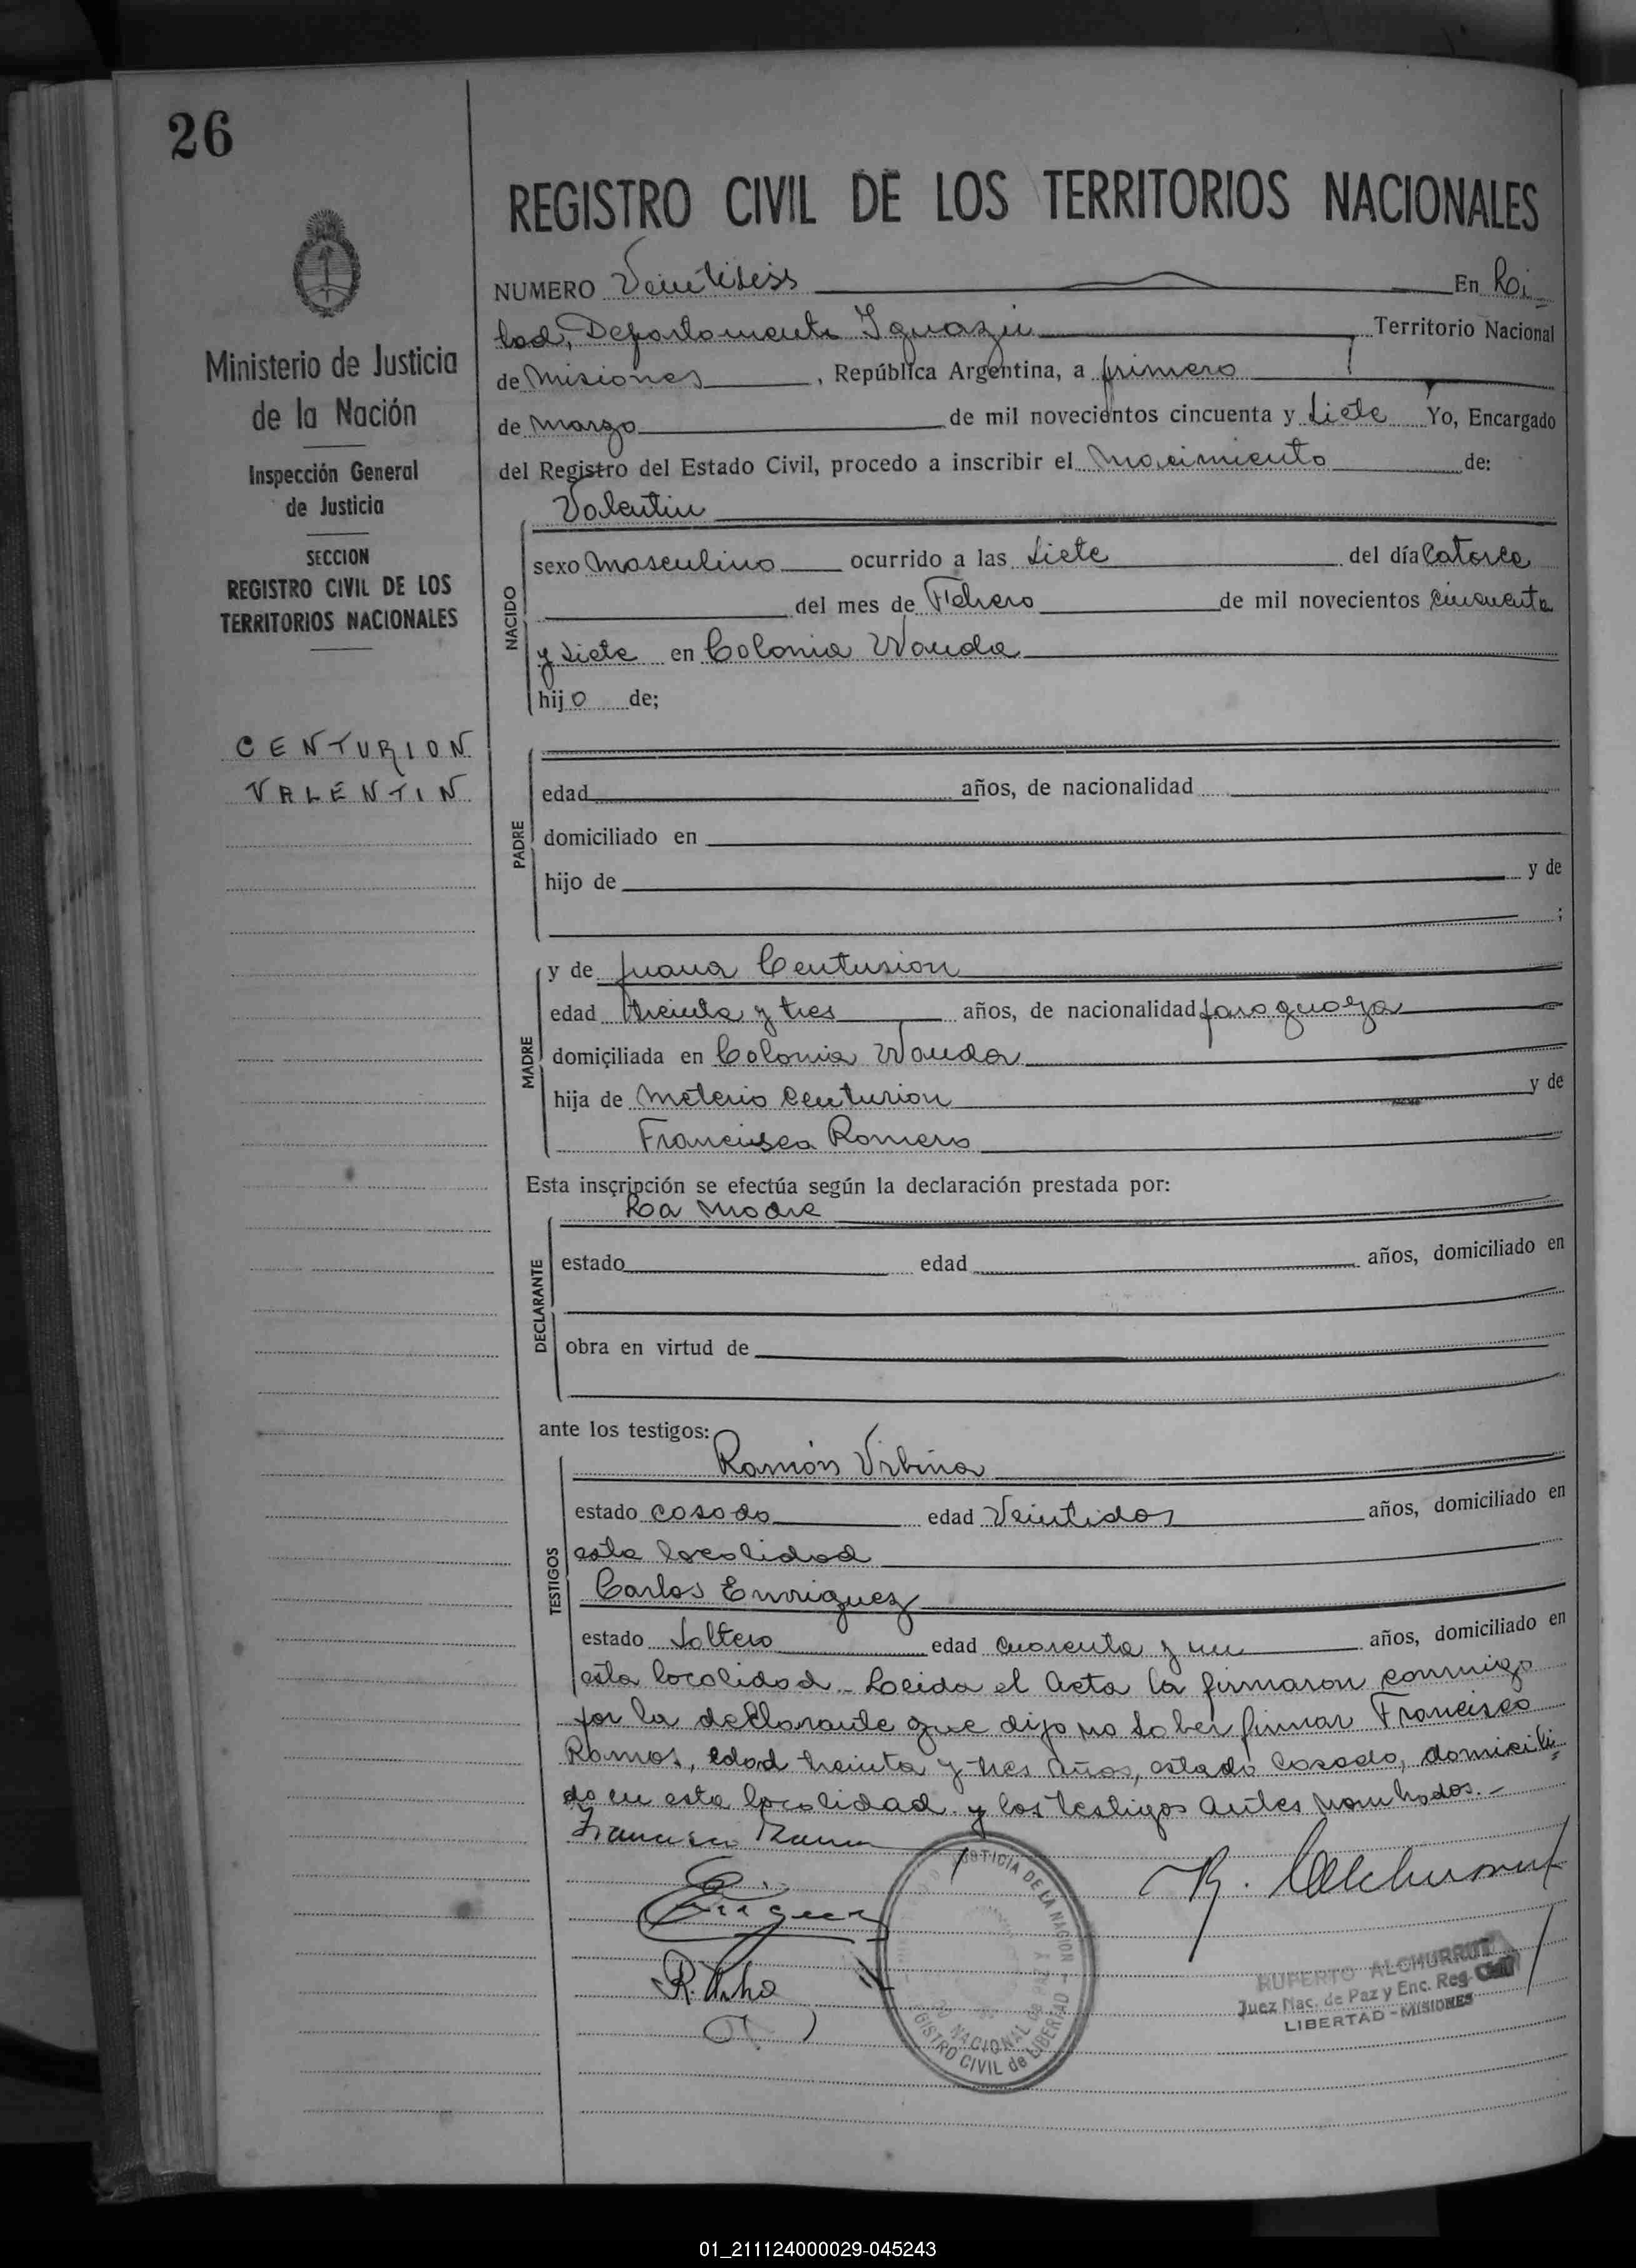 26
REGISTRO CIVIL DE LOS TERRITORIOS NACIONALES
NUMERO Veintiseis En Li
tad, Departamento Iguazú Territorio Nacional
de Misiones, República Argentina, a primero
de Marzo de mil novecientos cincuenta y siete Yo, Encargado
del Registro del Estado Civil, procedo a inscribir el Nacimiento de:
Ministerio de Justicia
de la Nación
Inspección General
de Justicia
SECCION
REGISTRO CIVIL DE LOS
TERRITORIOS NACIONALES
CENTURION
VALENTIN
NACIDO
Valentin
sexo Masculino ocurrido a las siete del día Catorce
del mes de Febrero de mil novecientos cincuenta
y siete en Colonia Wanda
hijo de;
PADRE
edad años, de nacionalidad
domiciliado en
hijo de y de
;
MADRE
y de Juana Centurion
edad treinta y tres años, de nacionalidad paraguaya
domiciliada en Colonia Wanda
hija de Meterio Centurion y de
Francisca Romero
Esta inscripción se efectúa según la declaración prestada por:
DECLARANTE
La Madre
estado edad años, domiciliado en
obra en virtud de
ante los testigos:
TESTIGOS
Ramón Urbina
estado casado edad Veintidos años, domiciliado en
esta localidad
Carlos Enriquez
estado soltero edad cuarenta y un años, domiciliado en
esta localidad - Leida el Acta la firmaron conmigo
por la declarante que dijo no saber firmar Francisco
Ramos, edad treinta y tres años, estado casado, domicili
do en esta localidad y los testigos antes nombrados.-
Francisco Ramos
JUSTICIA DE LA NACION
REGISTRO CIVIL de LIBERTAD
RUPERTO ALCHURRUT
Juez Nac. de Paz y Enc. Reg. Civil
LIBERTAD - MISIONES
01_211124000029-045243